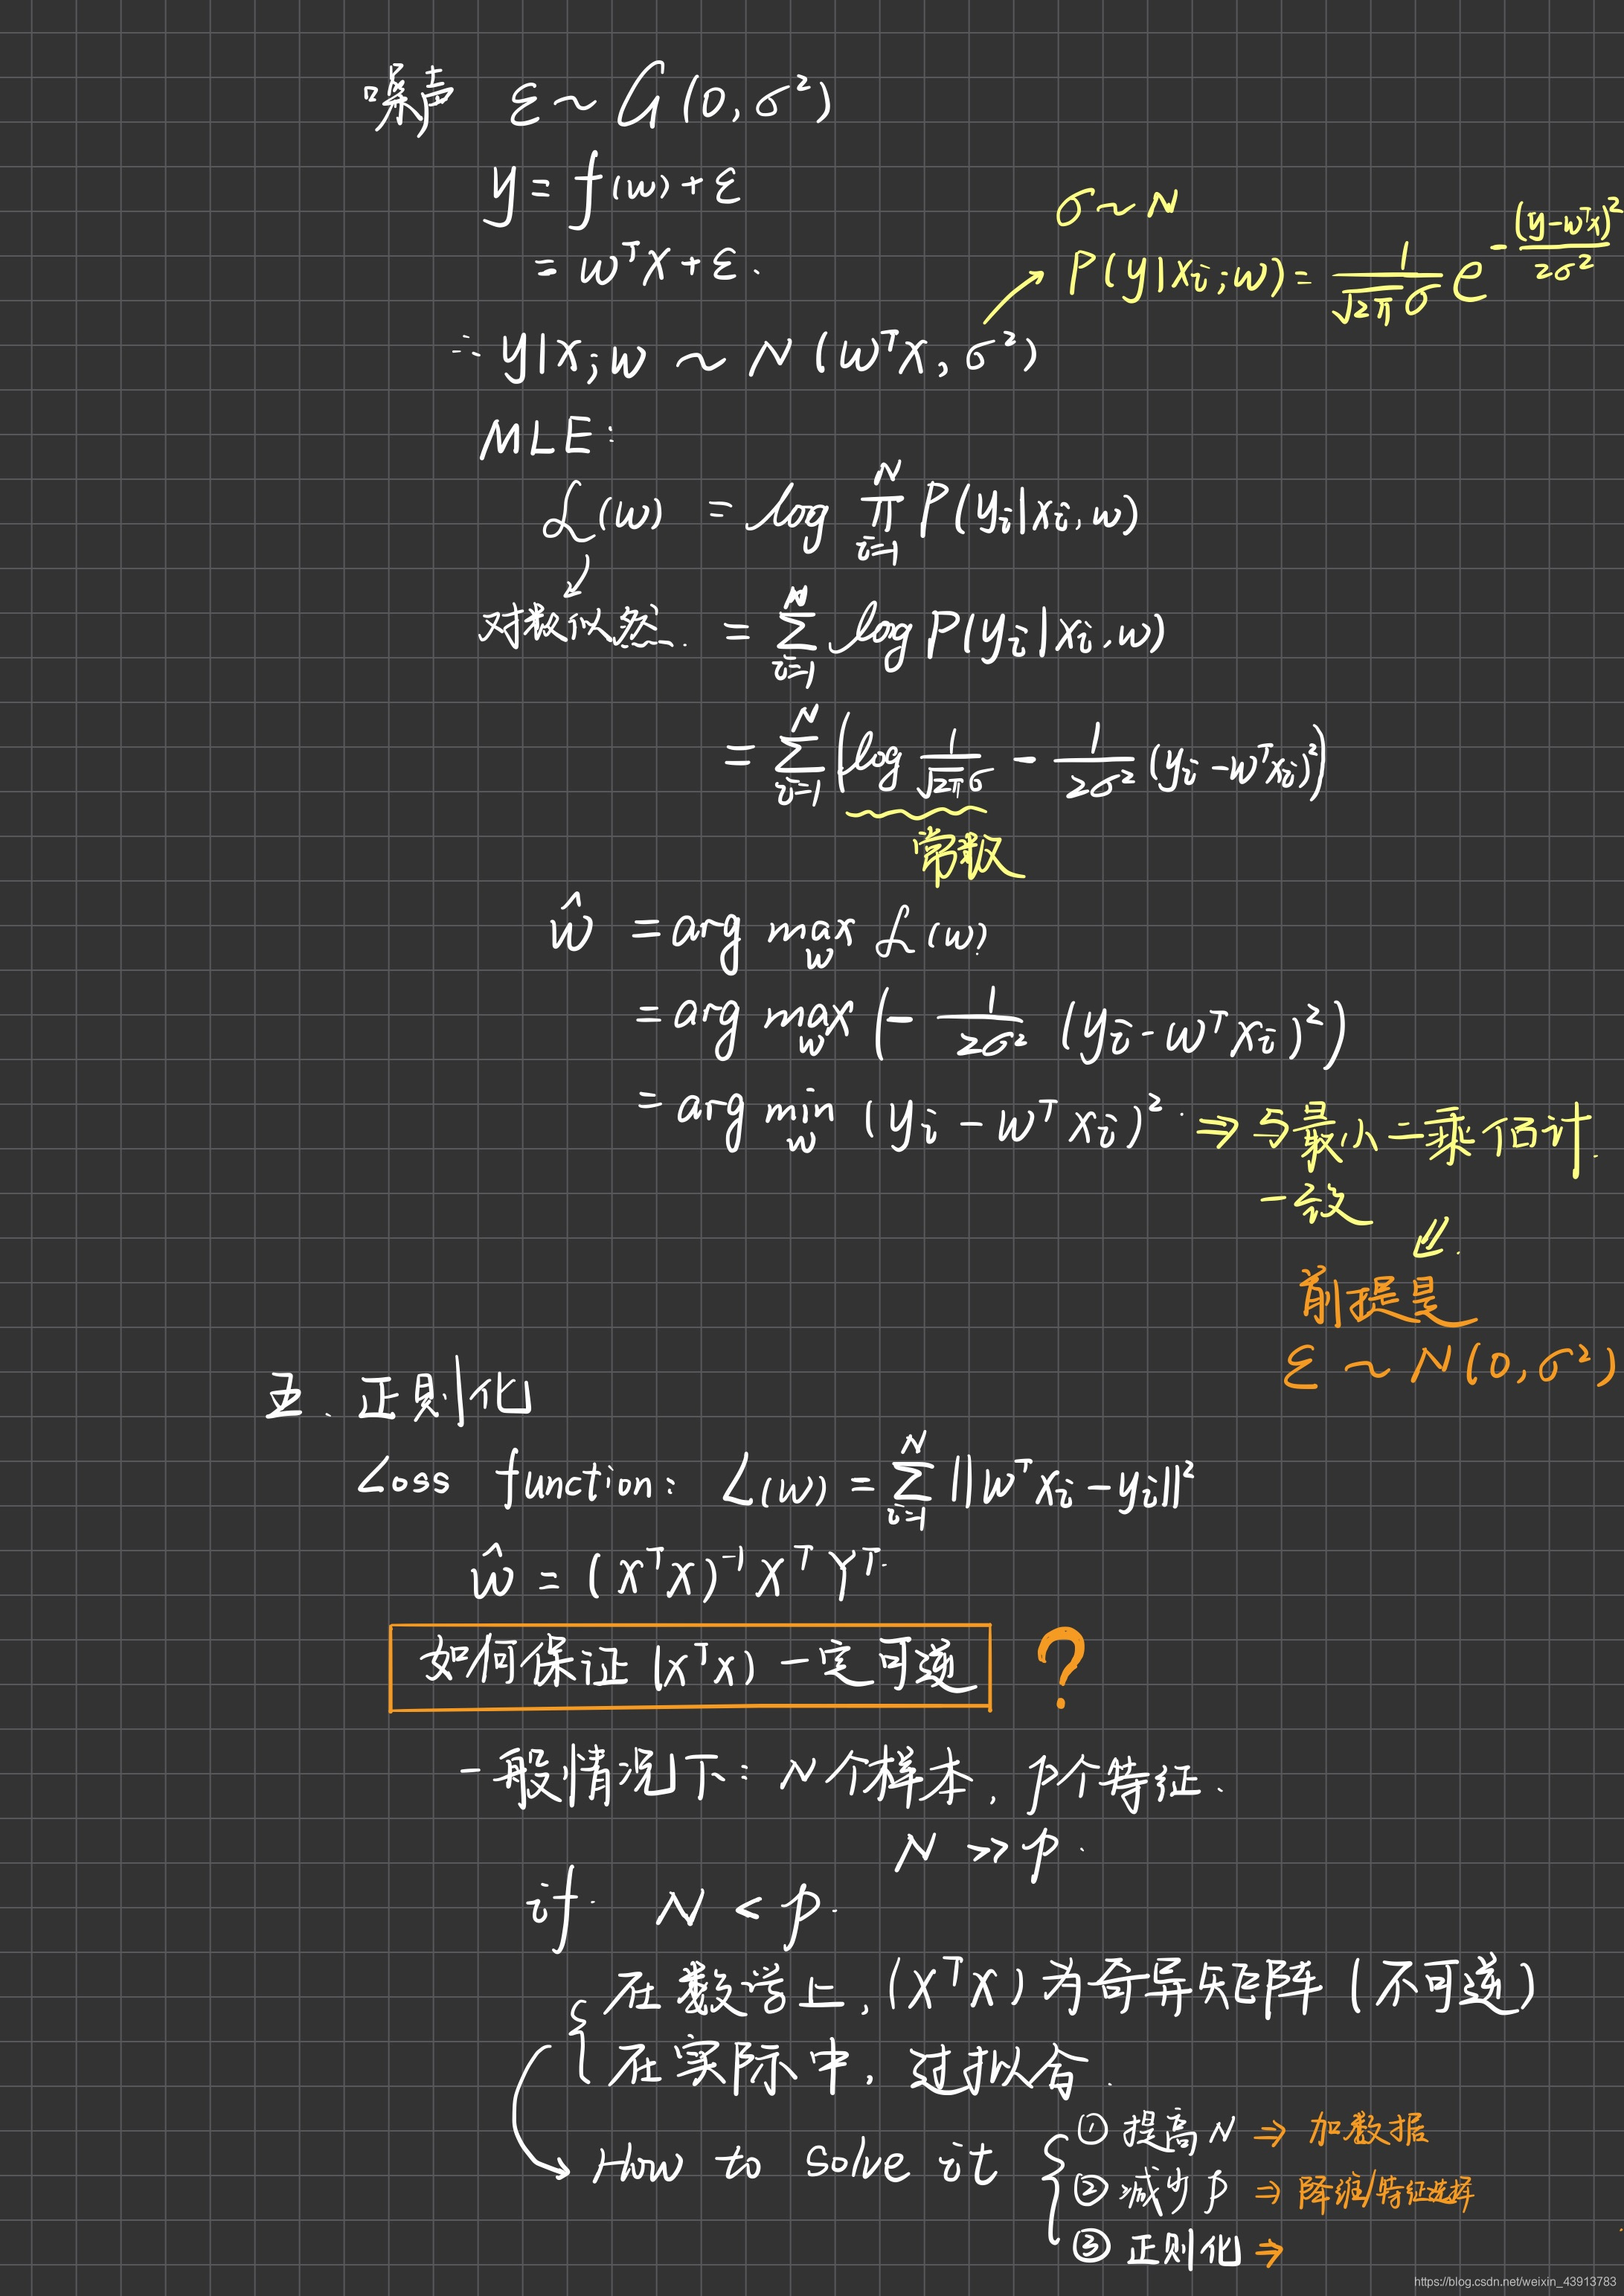 噪声 ε ~ G(0, σ²)
y = f(w) + ε
= wᵀx + ε.
σ ~ N
P(y|xᵢ;w) = 1/(√2π σ) e^(-(y-wᵀx)²/2σ²)
∴ y|x;w ~ N(wᵀx, σ²)
MLE:
ℒ(w) = log ∏ᵢ₌₁ᴺ P(yᵢ|xᵢ,w)
对数似然. = ∑ᵢ₌₁ᴺ log P(yᵢ|xᵢ,w)
= ∑ᵢ₌₁ᴺ (log 1/(√2π σ) - 1/(2σ²) (yᵢ - wᵀxᵢ)²)
常数
ŵ = arg max_w ℒ(w)
= arg max_w (- 1/(2σ²) (yᵢ - wᵀxᵢ)²)
= arg min_w (yᵢ - wᵀxᵢ)² ⇒ 与最小二乘估计.
一致
前提是
ε ~ N(0, σ²)
五. 正则化
Loss function: L(w) = ∑ᵢ₌₁ᴺ ||wᵀxᵢ - yᵢ||²
ŵ = (XᵀX)⁻¹XᵀYᵀ
如何保证 (XᵀX) 一定可逆 ?
一般情况下: N个样本, p个特征.
N >> p.
if N < p.
在数学上, (XᵀX) 为奇异矩阵 (不可逆)
在实际中, 过拟合.
How to solve it
① 提高 N ⇒ 加数据
② 减少 p ⇒ 降维/特征选择
③ 正则化 ⇒
https://blog.csdn.net/weixin_43913783